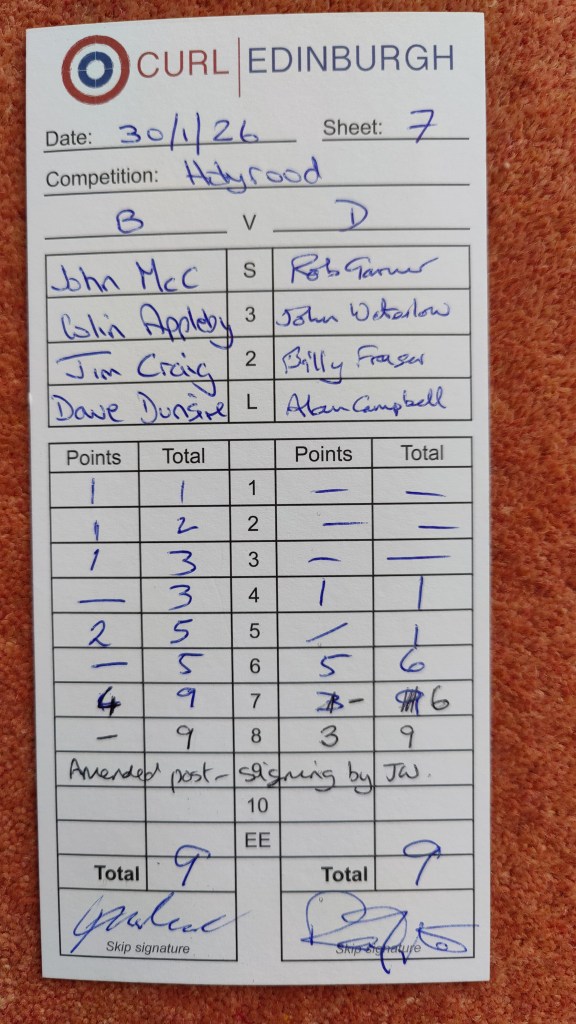 CURL | EDINBURGH
Date: 30/1/26 Sheet: 7
Competition: Holyrood
B V D
John McC S Rob Garner
Colin Appleby 3 John Waterlow
Jim Craig 2 Billy Fraser
Dave Dunsire L Alan Campbell
Points Total Points Total
1 1 1 — —
1 2 2 — —
1 3 3 — —
— 3 4 1 1
2 5 5 — 1
— 5 6 5 6
4 9 7 - 6
- 9 8 3 9
Amended post-signing by JW.
10
EE
Total 9 Total 9
Skip signature Skip signature